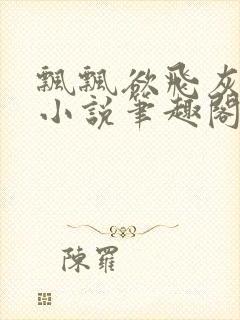 飄飄欲飛灰
小說筆趣閣
陳羅